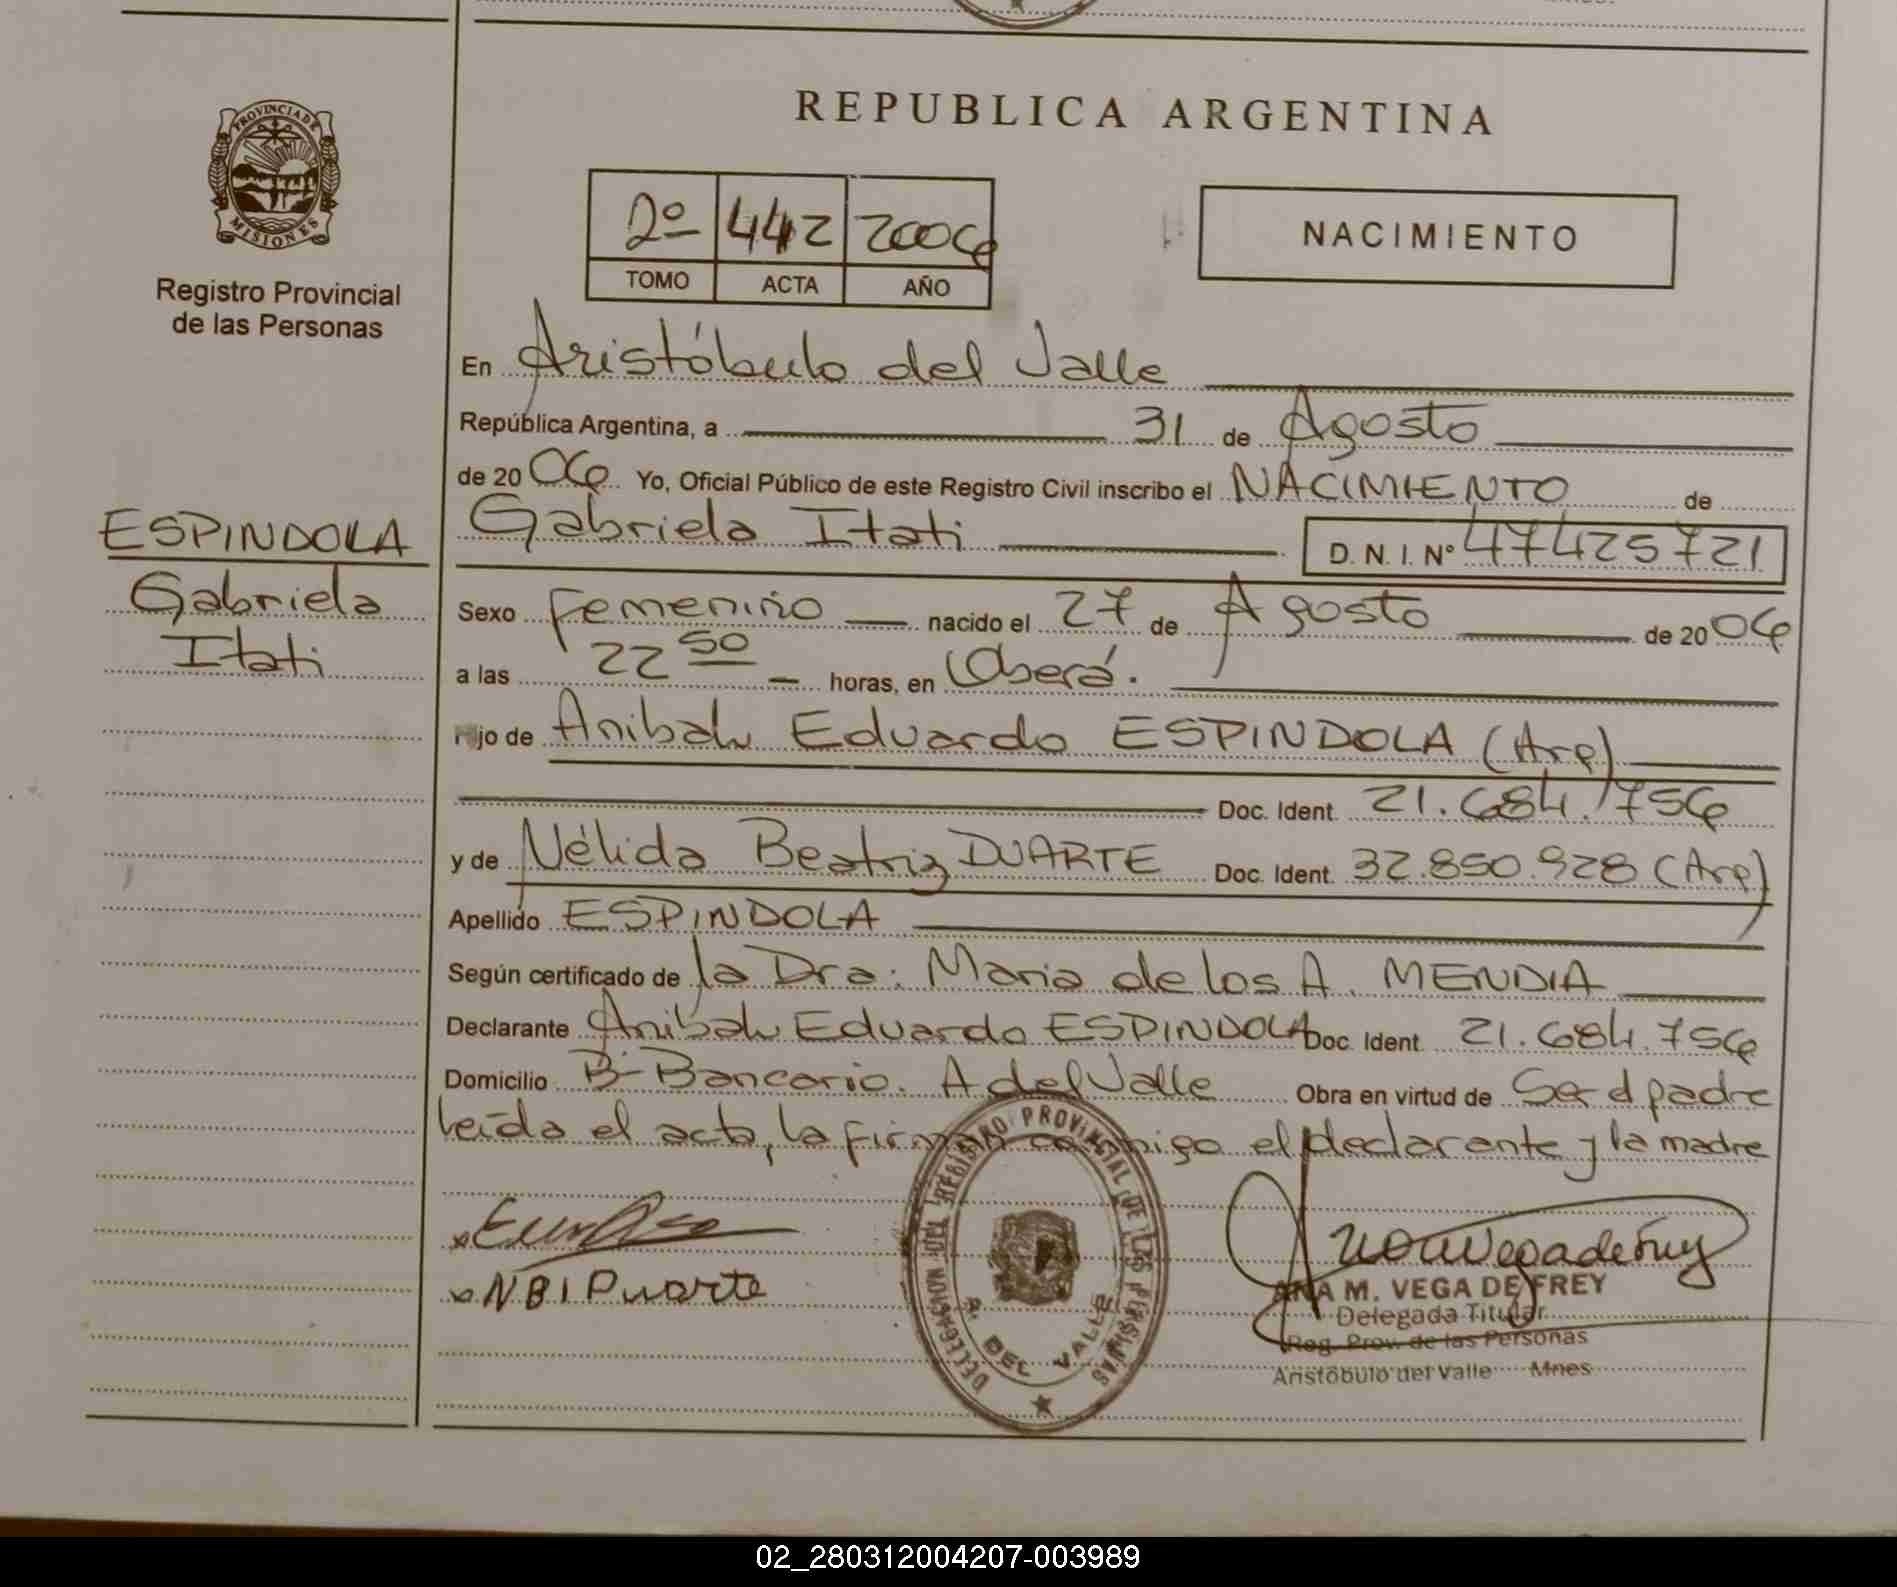 REPUBLICA ARGENTINA
PROVINCIA DE MISIONES
Registro Provincial
de las Personas
2º 442 2006
TOMO ACTA AÑO
NACIMIENTO
En Aristóbulo del Valle
República Argentina, a 31 de Agosto
de 2006 Yo, Oficial Público de este Registro Civil inscribo el NACIMIENTO de
Gabriela Itati D. N. I. Nº 47425721
ESPINDOLA
Gabriela
Itati
Sexo femenino nacido el 27 de Agosto de 2006
a las 22 50 horas, en Oberá.
jo de Anibal Eduardo ESPINDOLA (Arg)
Doc. Ident. 21.684.756
y de Nélida Beatriz DUARTE Doc. Ident. 32.850.928 (Arg)
Apellido ESPINDOLA
Según certificado de la Dra: Maria de los A. MENDIA
Declarante Anibal Eduardo ESPINDOLA Doc. Ident. 21.684.756
Domicilio Bº Bancario. A del Valle Obra en virtud de Ser el padre
leída el acta, la firman conmigo el declarante y la madre
NBI Duarte
DELEGACION DEL REGISTRO PROVINCIAL DE LAS PERSONAS
A. DEL VALLE
ANA M. VEGA DE FREY
Delegada Titular
Reg. Prov. de las Personas
Aristóbulo del Valle Mnes
02_280312004207-003989